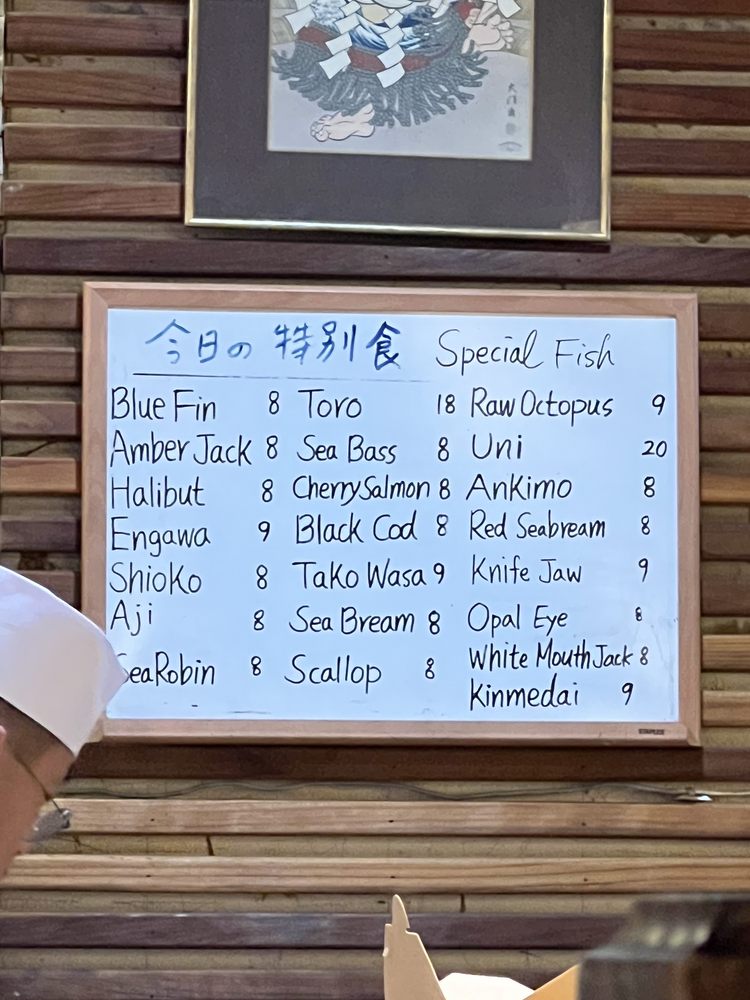 今日の特別食 Special Fish
Blue Fin 8 Toro 18 Raw Octopus 9
Amber Jack 8 Sea Bass 8 Uni 20
Halibut 8 Cherry Salmon 8 Ankimo 8
Engawa 9 Black Cod 8 Red Seabream 8
Shioko 8 Tako Wasa 9 Knife Jaw 9
Aji 8 Sea Bream 8 Opal Eye 8
Sea Robin 8 Scallop 8 White Mouth Jack 8
Kinmedai 9
STAPLES